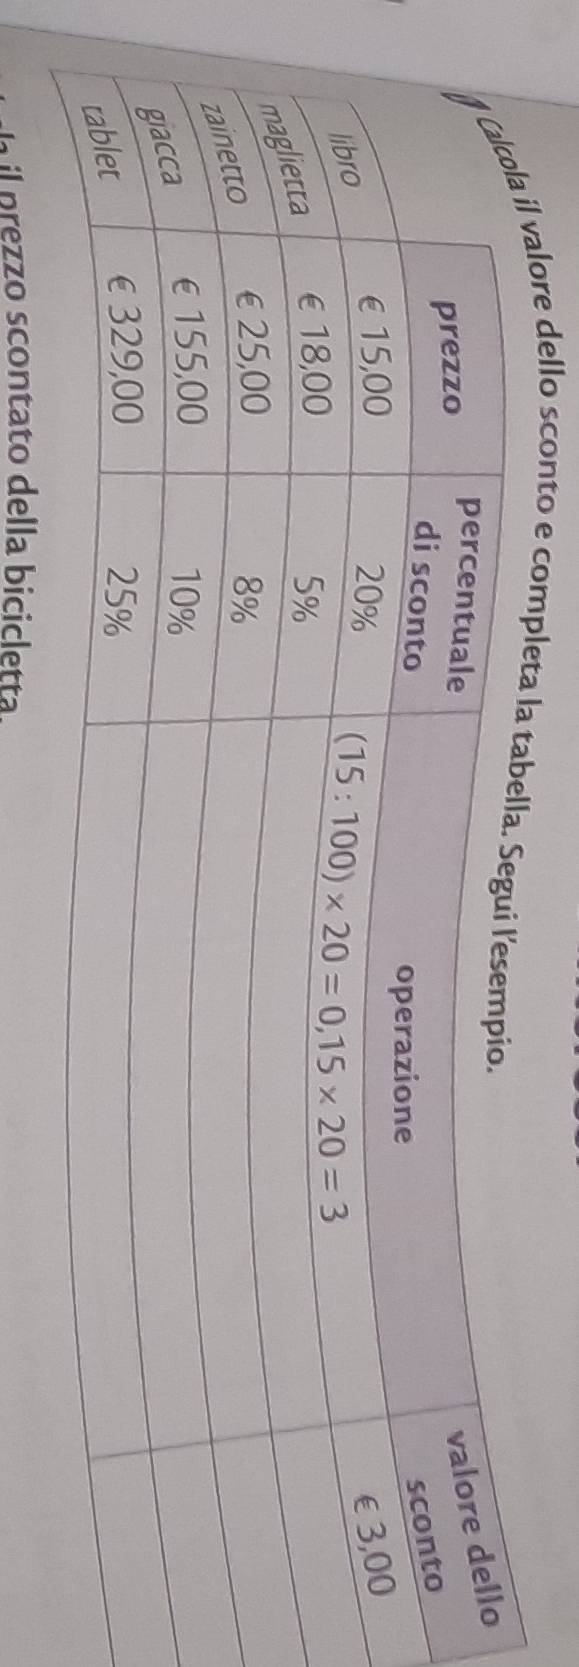 Calcola il valore dello sconto e completa la tabella. Segui l'esempio.
prezzo percentuale di sconto operazione valore dello sconto
libro € 15,00 20% (15 : 100) × 20 = 0,15 × 20 = 3 € 3,00
maglietta € 18,00 5%
zainetto € 25,00 8%
giacca € 155,00 10%
tablet € 329,00 25%
il prezzo scontato della bicicletta.